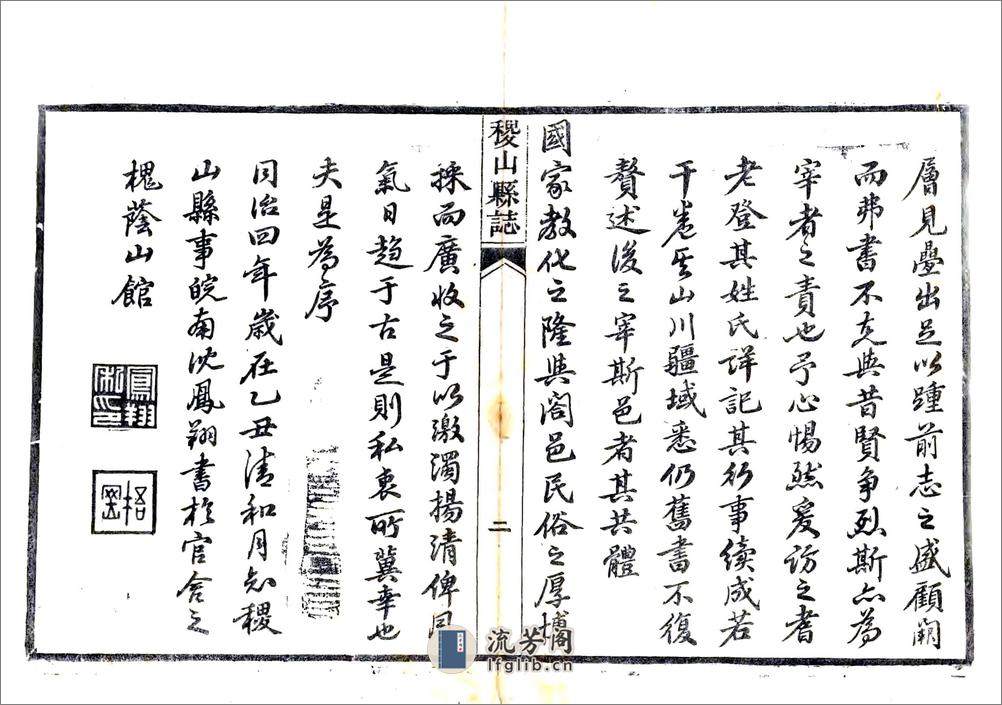 層見疊出足以踵前志之盛顧闕
而弗書不克與昔賢争烈斯亦為
宰者之責也予心惕然爰訪之耆
老登其姓氏詳記其行事續成若
干卷至山川疆域悉仍舊書不復
贅述後之宰斯邑者其共體
國家教化之隆與閤邑民俗之厚博
稷山縣誌
二
採而廣收之于以激濁揚清俾風
氣日趨于古是則私衷所冀幸也
夫是為序
同治四年歲在乙丑清和月知稷
山縣事皖南沈鳳翔書於官舍之
槐蔭山館
鳳翔私印
梧岡
流芳閣
lfglib.cn